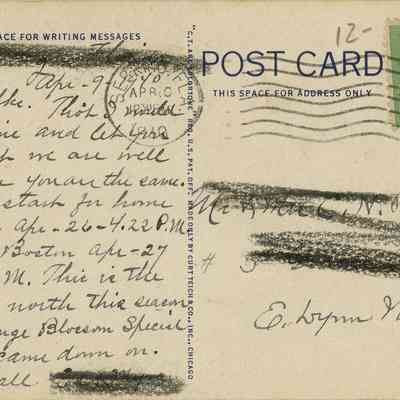 ACE FOR WRITING MESSAGES
Apr-9-1940
ke. Thot I would
ine and let you
t we are well
e you are the same.
start for home
Apr-26-4.22 P.M.
Boston Apr-27
M. This is the
north this season
nge Blossom Special
came down on.
all.
"C.T. ART-COLORTONE" REG. U.S. PAT. OFF. MADE ONLY BY CURT TEICH & CO., INC., CHICAGO
APR 10
1940
12-
POST CARD
THIS SPACE FOR ADDRESS ONLY
Mr
#
E. Lynn